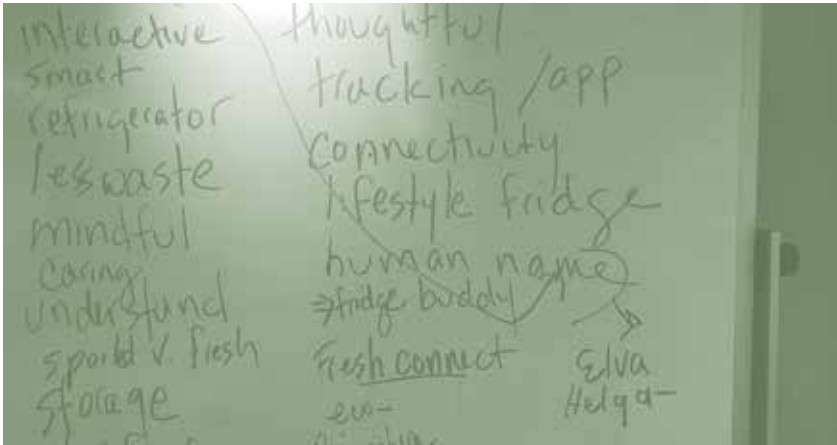 interactive
smart
refrigerator
less waste
mindful
caring
understand
spoiled v. fresh
storage
thoughtful
tracking /app
connectivity
lifestyle fridge
human name
⇒fridge buddy
fresh connect
eco-
Elva
Helga